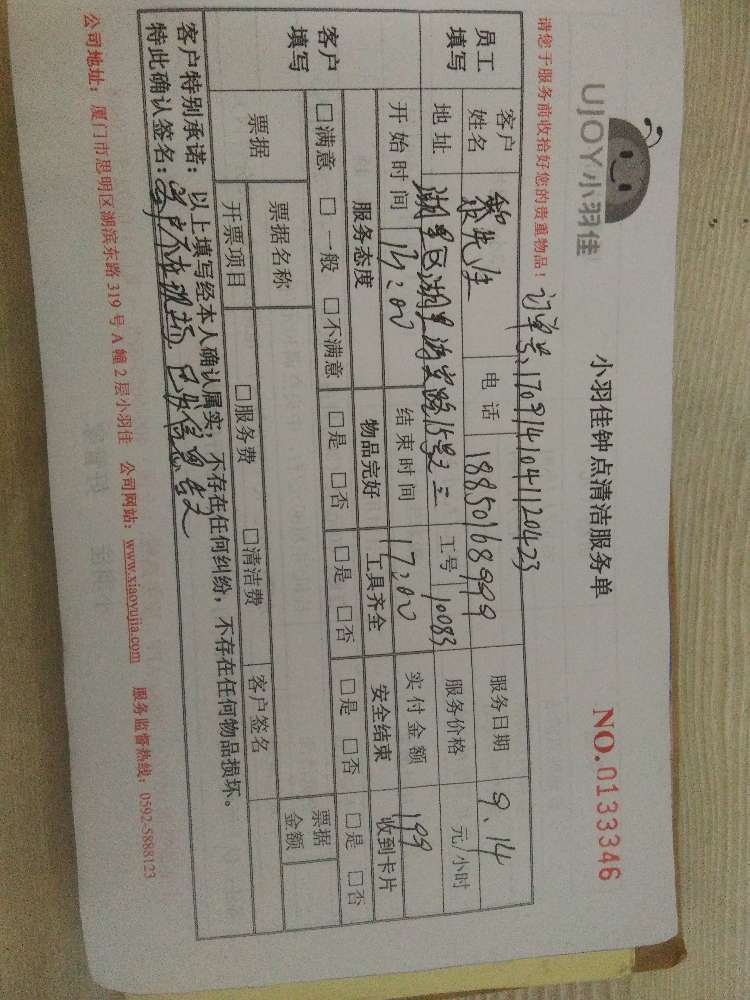 UJOY小羽佳
小羽佳钟点清洁服务单
NO.0133346
请您于服务前收拾好您的贵重物品!
订单号:1709141041120423
员工填写 客户姓名 黎先生 电话 18850168999 服务日期 9.14
地址 湖里区湖里 路15号之三 工号 10083 服务价格 元/小时
开始时间 13:00 结束时间 17:00 实付金额 199
客户填写 服务态度 物品完好 工具齐全 安全结束 收到卡片
□满意 □一般 □不满意 □是 □否 □是 □否 □是 □否 □是 □否
票据 票据名称 票据金额
开票项目 □服务费 □清洁费 客户签名
客户特别承诺:以上填写经本人确认属实,不存在任何纠纷,不存在任何物品损坏。
特此确认签名: 客户不在现场,已发信息告之
公司地址:厦门市思明区湖滨东路319号A幢2层小羽佳 公司网站:www.xiaoyujia.com 服务监督热线:0592-5888123